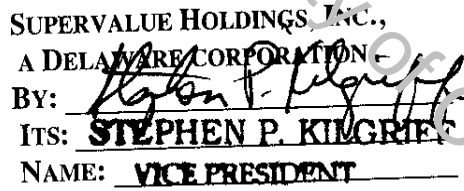 SUPERVALUE HOLDINGS, INC.,
A DELAWARE CORPORATION
BY: Stephen P. Kilgriff
ITS: STEPHEN P. KILGRIFF
NAME: VICE PRESIDENT